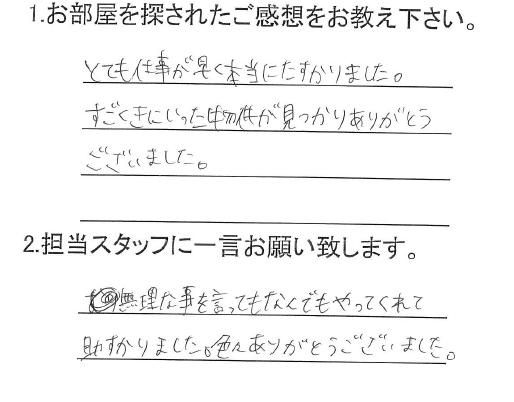 1.お部屋を探されたご感想をお教え下さい。
とても仕事が早く本当にたすかりました。
すごくきにいった物件が見つかりありがとう
ございました。
2.担当スタッフに一言お願い致します。
無理な事を言ってもなんでもやってくれて
助すかりました。色々ありがとうございました。